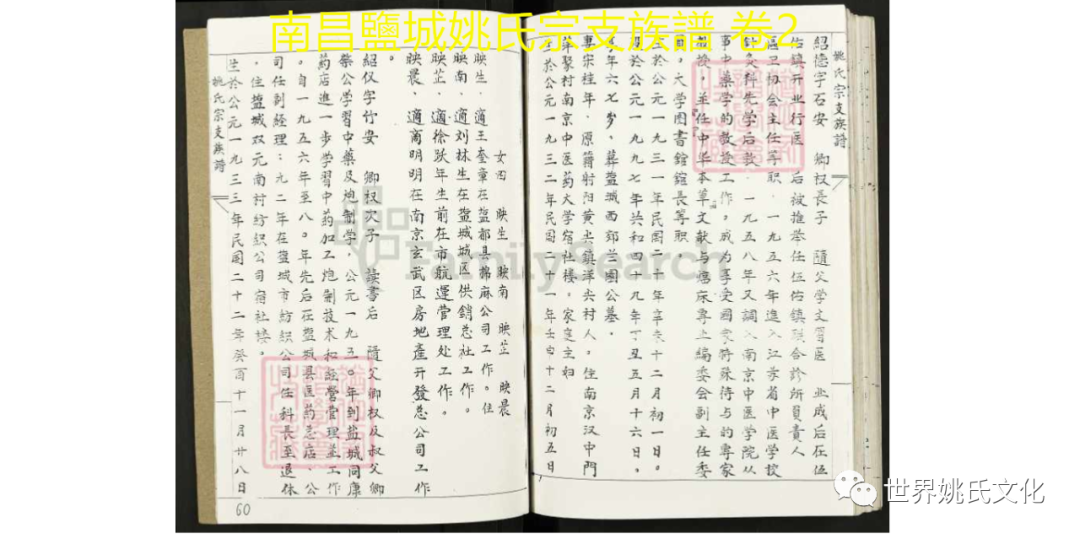 南昌鹽城姚氏宗支族譜 卷2
姚氏宗支族譜
紹德字石安 卿权長子 隨父学文習医 业成后在伍
佑鎮开业行医 后被推举任伍佑镇联合診所負責人
區卫协会主任等职 一九五六年進入江苏省中医学校
針灸科先学后教 一九五八年又調入南京中医学院从
事中藥学的教授工作，成为享受國家特殊待与的專家
教授，並任中华本草文献与临床專上編委会副主任委
員，大学图書舘舘長等职。
生於公元一九三一年民國二十年辛未十二月初一日。
殁於公元一九九七年共和四十九年丁丑五月十六日，
享年六七岁，葬盐城西郊兰園公墓。
妻宋桂年，原籍射阳黄尖鎮洋尖村人，住南京汉中門
华聚村南京中医药大学宿社楼，家庭主妇
生於公元一九三二年民國二十一年壬申十二月初五日
女四 映生 映南 映芷 映晨
映生，適王奎章在盐都县棉麻公司工作。住
映南，適刘林生在盐城城区供銷总社工作。
映芷，適徐跃年生前在市航運管理处工作。
映晨，適甯明明在南京玄武区房地產开發总公司工作
。
紹仪字竹安 卿权次子 讀書后 隨父卿权及叔父卿
榮公学習中藥及炮制学，公元一九五〇年到盐城同康
药店進一步学習中药加工炮制技术和經營管理並工作
。自一九五六年至八〇年先后在盐城县医药总店、公
司任副經理；九二年在盐城市紡織公司任科長至退休
，住盐城双元南村紡織公司宿社楼。
生於公元一九三三年民國二十二年癸酉十一月廿八日
姚氏宗支族譜
60
FamilySearch
世界姚氏文化